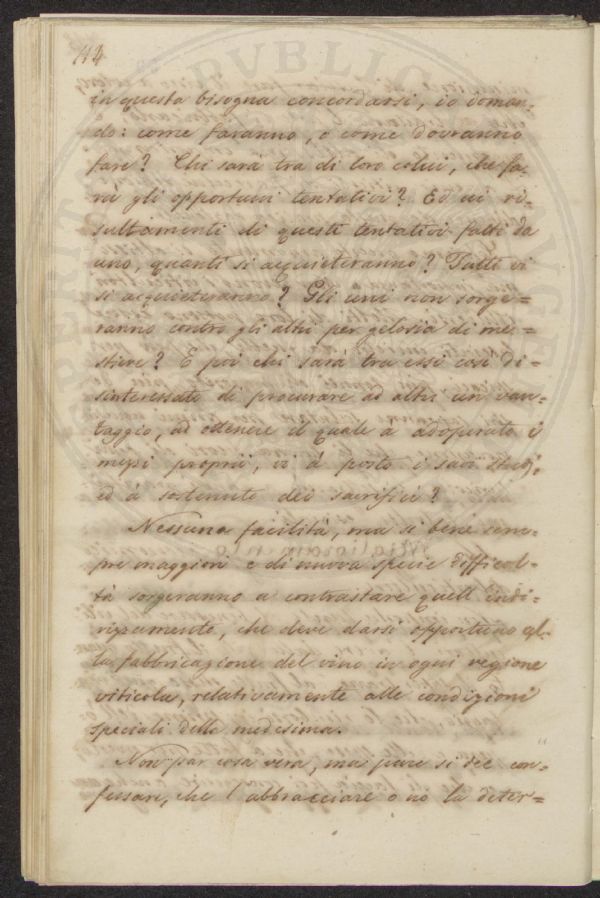 114
in questa bisogna concordarsi, io doman-
do: come faranno, o come dovranno
fare? Chi sarà tra di loro colui, che fa-
rà gli opportuni tentativi? Ed ai ri-
sultamenti di questi tentativi fatti da
uno, quanti si acquieteranno? Tutti vi
si acquieteranno? Gli uni non sorge=
ranno contro gli altri per gelosia di me-
stiere? E poi chi sarà tra essi così di-
sinteressato di procurare ad altri un van-
taggio, ad ottenere il quale à adoperato i
mezzi proprii, vi à posto i suoi studj,
ed à sostenuto dei sacrifici?
Nessuna facilità, ma si bene sem-
pre maggiori e di nuova specie difficol-
tà sorgeranno a contrastare quell' indi-
rizzamento, che deve darsi opportuno al-
la fabbricazione del vino in ogni regione
viticola, relativamente alle condizioni
speciali della medesima.
Non par cosa vera, ma pure si dee con-
fessare, che l'abbracciare o no la deter=